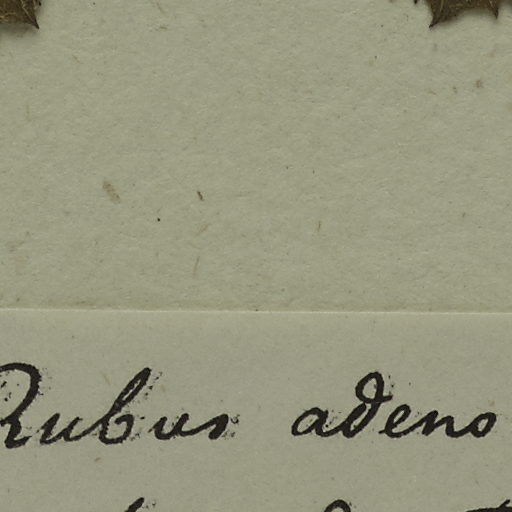 Rubus adeno